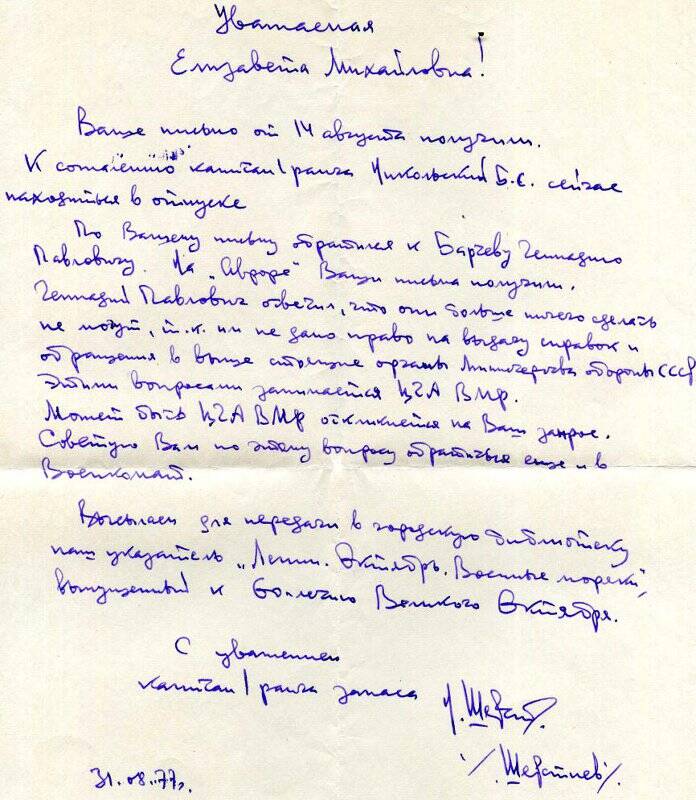 Уважаемая
Елизавета Михайловна!
Ваше письмо от 14 августа получили.
К сожалению капитан I ранга Никольский Б.С. сейчас
находиться в отпуске
По Вашему письму обратился к Барчеву Геннадию
Павловичу. На „Авроре" Ваши письма получили.
Геннадий Павлович ответил, что они больше ничего сделать
не могут, т.к. им не дано право на выдачу справок и
обращения в выше стоящие органы Министерства обороны СССР
Этими вопросами занимается ЦГА ВМФ.
Может быть ЦГА ВМФ откликнется на Ваш запрос.
Советую Вам по этому вопросу обратиться еще и в
Военкомат.
Высылаем для передачи в городскую библиотеку
наш указатель „Ленин. Октябрь. Военные моряки",
выпущенный к 60-летию Великого Октября.
С уважением
капитан I ранга запаса
31.08.77г.